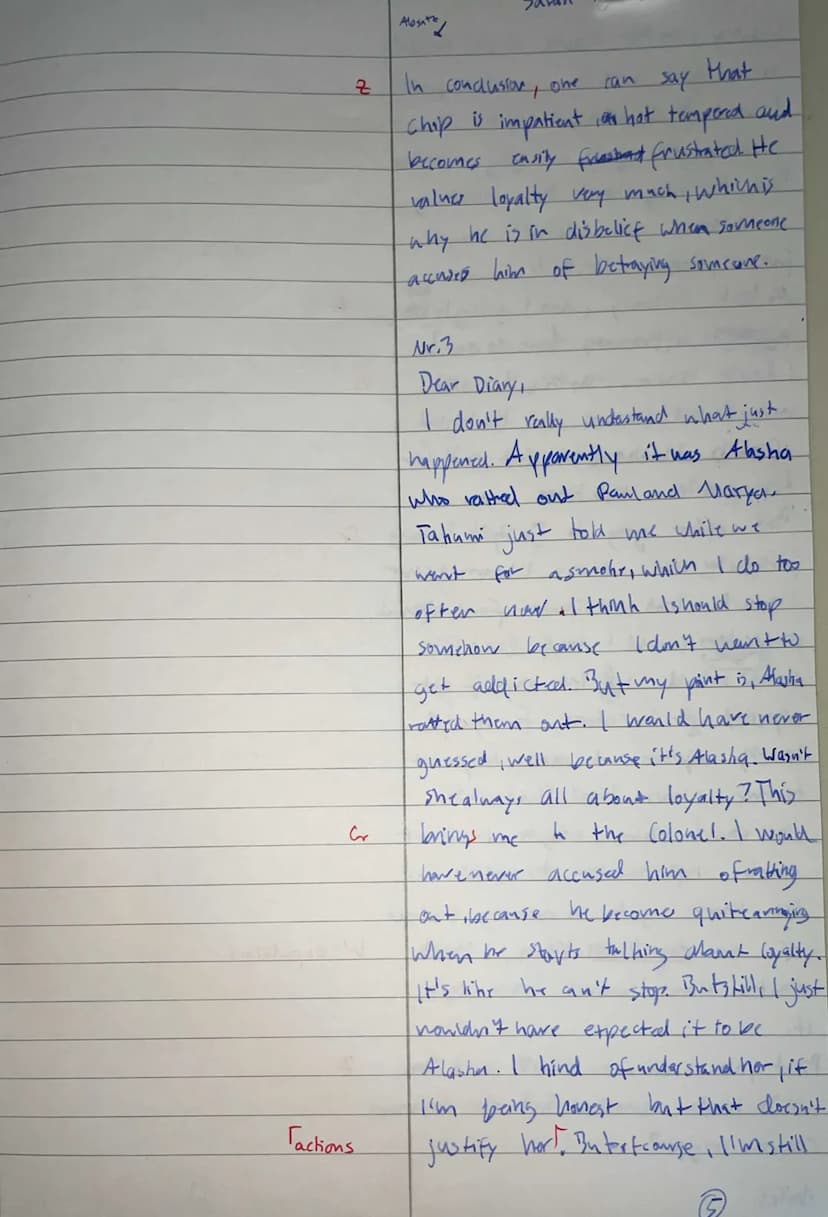 Absatz
Z In conclusion, one can say that
Chip is impatient, hot tempered and
becomes easily frustrated. He
values loyalty very much, which is
why he is in disbelief when someone
accuses him of betraying someone.
Nr.3
Dear Diary,
I don't really undastand what just
happened. Apparently it was Alasha
who ratted out Paul and Marya.
Takumi just told me while we
went for a smoke, which I do too
often now. I think I should stop
somehow because I don't want to
get addicted. But my point is, Alasha
ratted them out. I would have never
guessed, well because it's Alasha. Wasn't
she always all about loyalty? This
Gr brings me to the Colonel. I would
have never accused him of ratting
out, because he become quite annoying
when he starts talking about loyalty.
It's like he can't stop. But still, I just
wouldn't have expected it to be
Alasha. I kind of understand her, if
I'm being honest but that doesn't
Γactions justify her Γ. But of course, I'm still
5